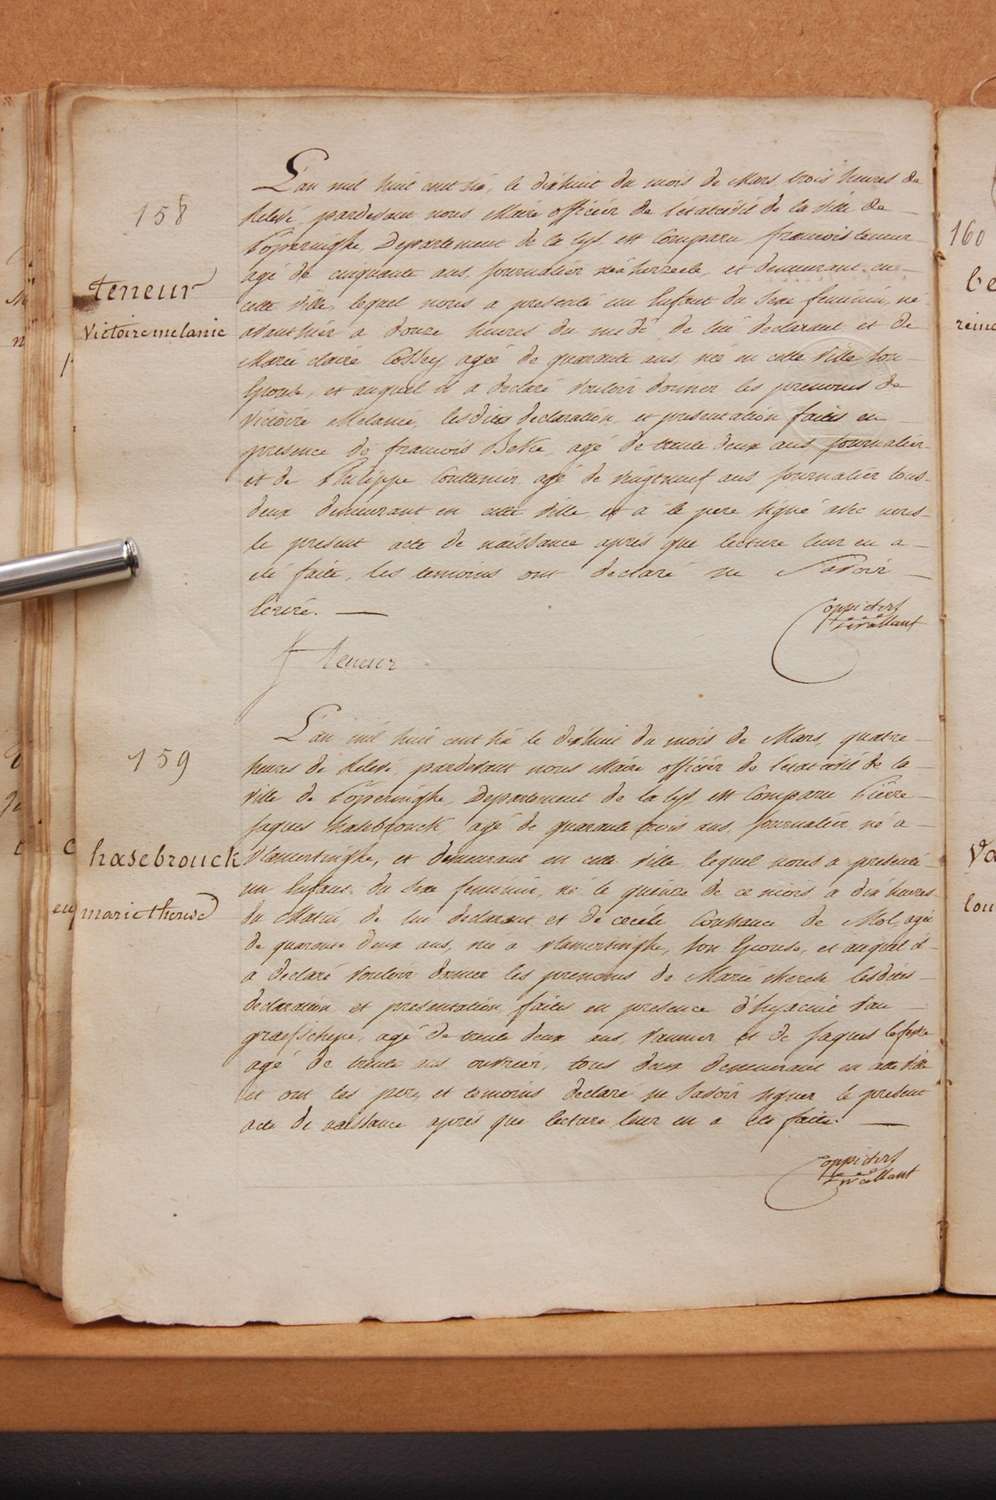 158
teneur
Victoire melanie
L'an mil huit cent dix, le dixhuit du mois de Mars, trois heures de
Relevé, pardevant nous Maire officier de l'état civil de la ville de
Poperinghe, Departement de la Lys, est Comparu francois teneur
agé de cinquante ans, Journalier né à herzeele, et demeurant en
cette ville, lequel nous a presenté un Enfant du Sexe feminin, né
avant hier à douze heures du midi, de lui declarant et de
Marie Claire Cossey agée de quarante ans, née en cette Ville Son
Epouse, et auquel il a declaré vouloir donner les prenoms de
Victoire Melanie, lesdites declaration, et presentation faites en
presence de francois Beke, agé de trente deux ans Journalier
et de Philippe Couttenier agé de vingtneuf ans Journalier tous
deux demeurant en cette ville et a le pere signé avec nous
le present acte de naissance après que lecture leur en a
été faite, les temoins ont declaré ne Savoir
Ecrire.
Coppieters
Stevallant
f teneur
159
hasebrouck
marie therese
L'an mil huit cent dix le dixhuit du mois de Mars, quatre
heures de Relevé, pardevant nous Maire officier de l'etat civil de la
ville de Poperinghe, Departement de la Lys, est Comparu Pierre
Jaques hasebrouck, agé de quarante trois ans, Journalier, né a
Vlamertinghe, et demeurant en cette Ville, lequel nous a presenté
un Enfant du Sexe feminin, né le quinze de ce mois à dix heures
du Matin, de lui declarant et de cecile Constance de Mol, agée
de quarante deux ans, née a vlamertinghe, Son Epouse, et auquel il
a declaré vouloir donner les prenoms de Marie therese lesdites
declaration et presentation faites en presence d'hyacinte van
graefschepe, agé de trente deux ans, vannier et de Jaques
agé de trente ans ouvrier, tous deux demeurant en cette ville
et ont les pere et temoins declaré ne Savoir signer le present
acte de naissance après que lecture leur en a été faite.
Coppieters
Stevallant
160
be
reine
va
lou